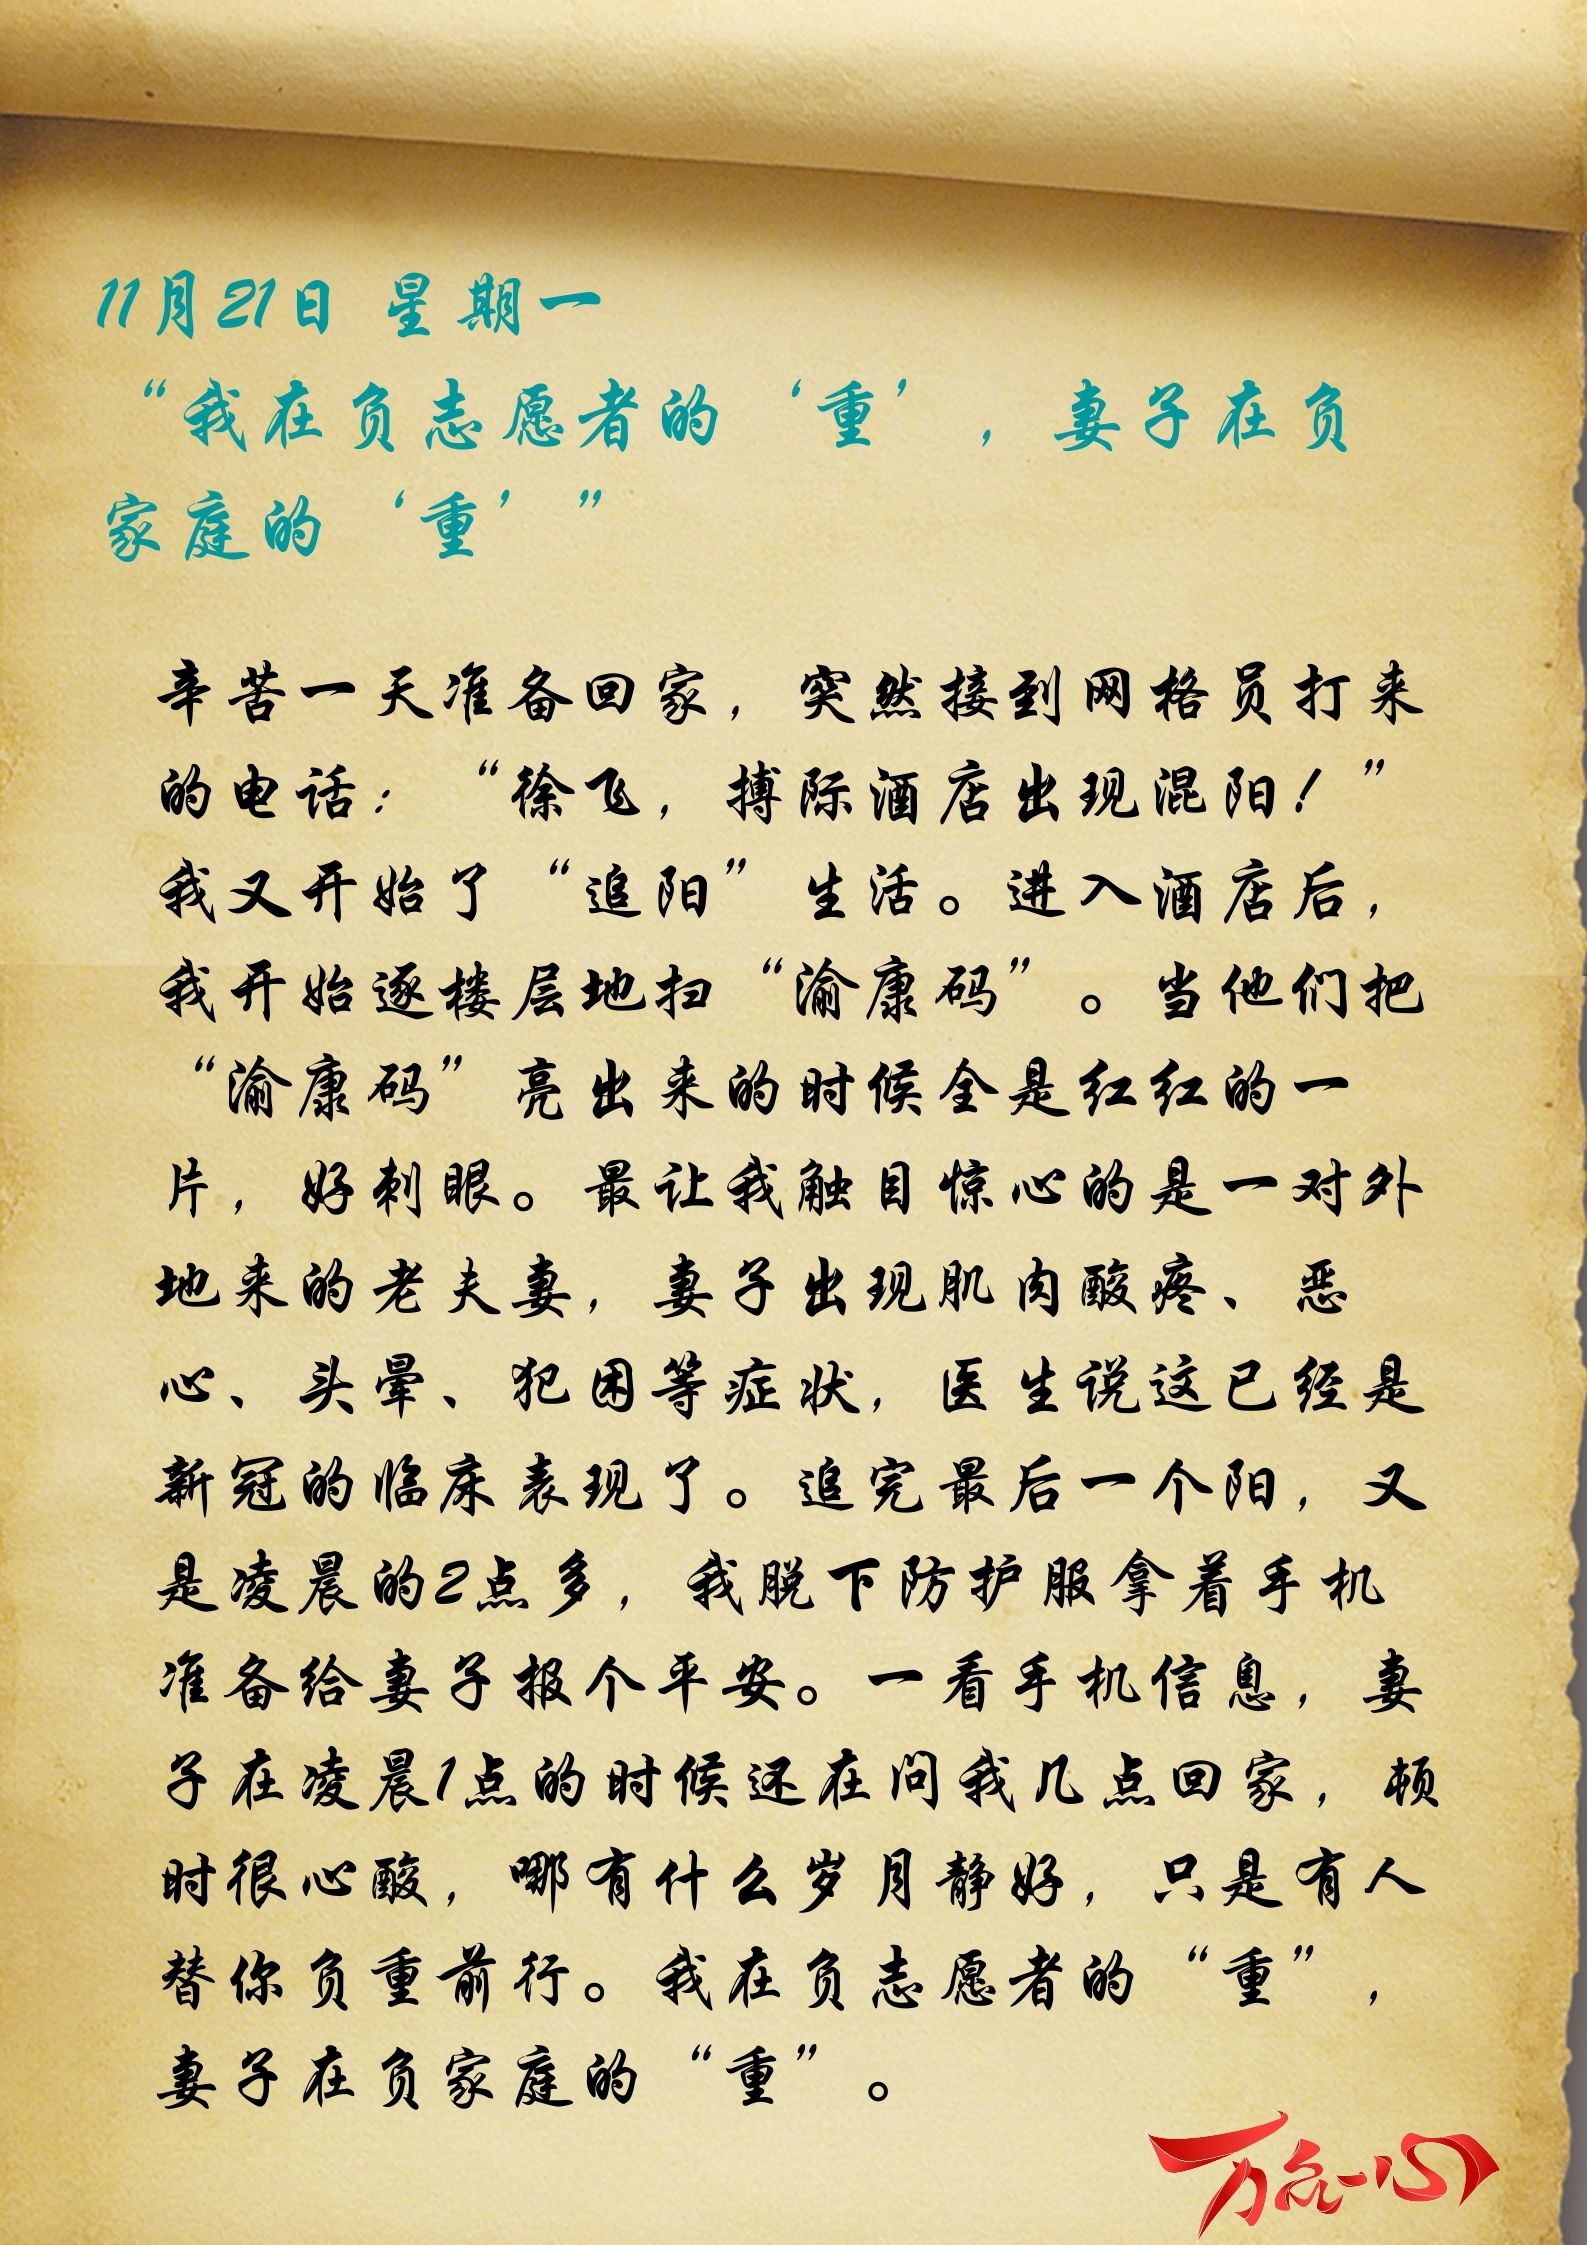 11月21日 星期一
“我在负志愿者的‘重’，妻子在负
家庭的‘重’”
辛苦一天准备回家，突然接到网格员打来
的电话：“徐飞，搏际酒店出现混阳！”
我又开始了“追阳”生活。进入酒店后，
我开始逐楼层地扫“渝康码”。当他们把
“渝康码”亮出来的时候全是红红的一
片，好刺眼。最让我触目惊心的是一对外
地来的老夫妻，妻子出现肌肉酸疼、恶
心、头晕、犯困等症状，医生说这已经是
新冠的临床表现了。追完最后一个阳，又
是凌晨的2点多，我脱下防护服拿着手机
准备给妻子报个平安。一看手机信息，妻
子在凌晨1点的时候还在问我几点回家，顿
时很心酸，哪有什么岁月静好，只是有人
替你负重前行。我在负志愿者的“重”，
妻子在负家庭的“重”。
万众一心